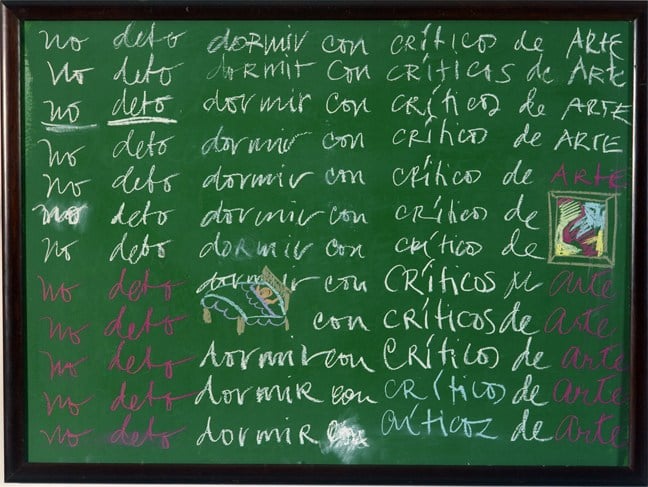 no debo doRMir con cRÍTicos de ARTE
No debo doRMiR con CRÍTICOS de ARTE
no debo dormir con críticos de ARTE
no debo dormir con críticos de ARTE
no debo dormir con críticos de ARTE
no debo dormir con críticos de
no debo dormir con críticos de
no debo dormir con CRÍTICOS de arte
no debo con CRÍTICOS de arte
no debo dormir con CRÍTICOS de arte
no debo dormIR con CRÍTICOS de arte
no debo dormIR con CRÍTICOS de arte